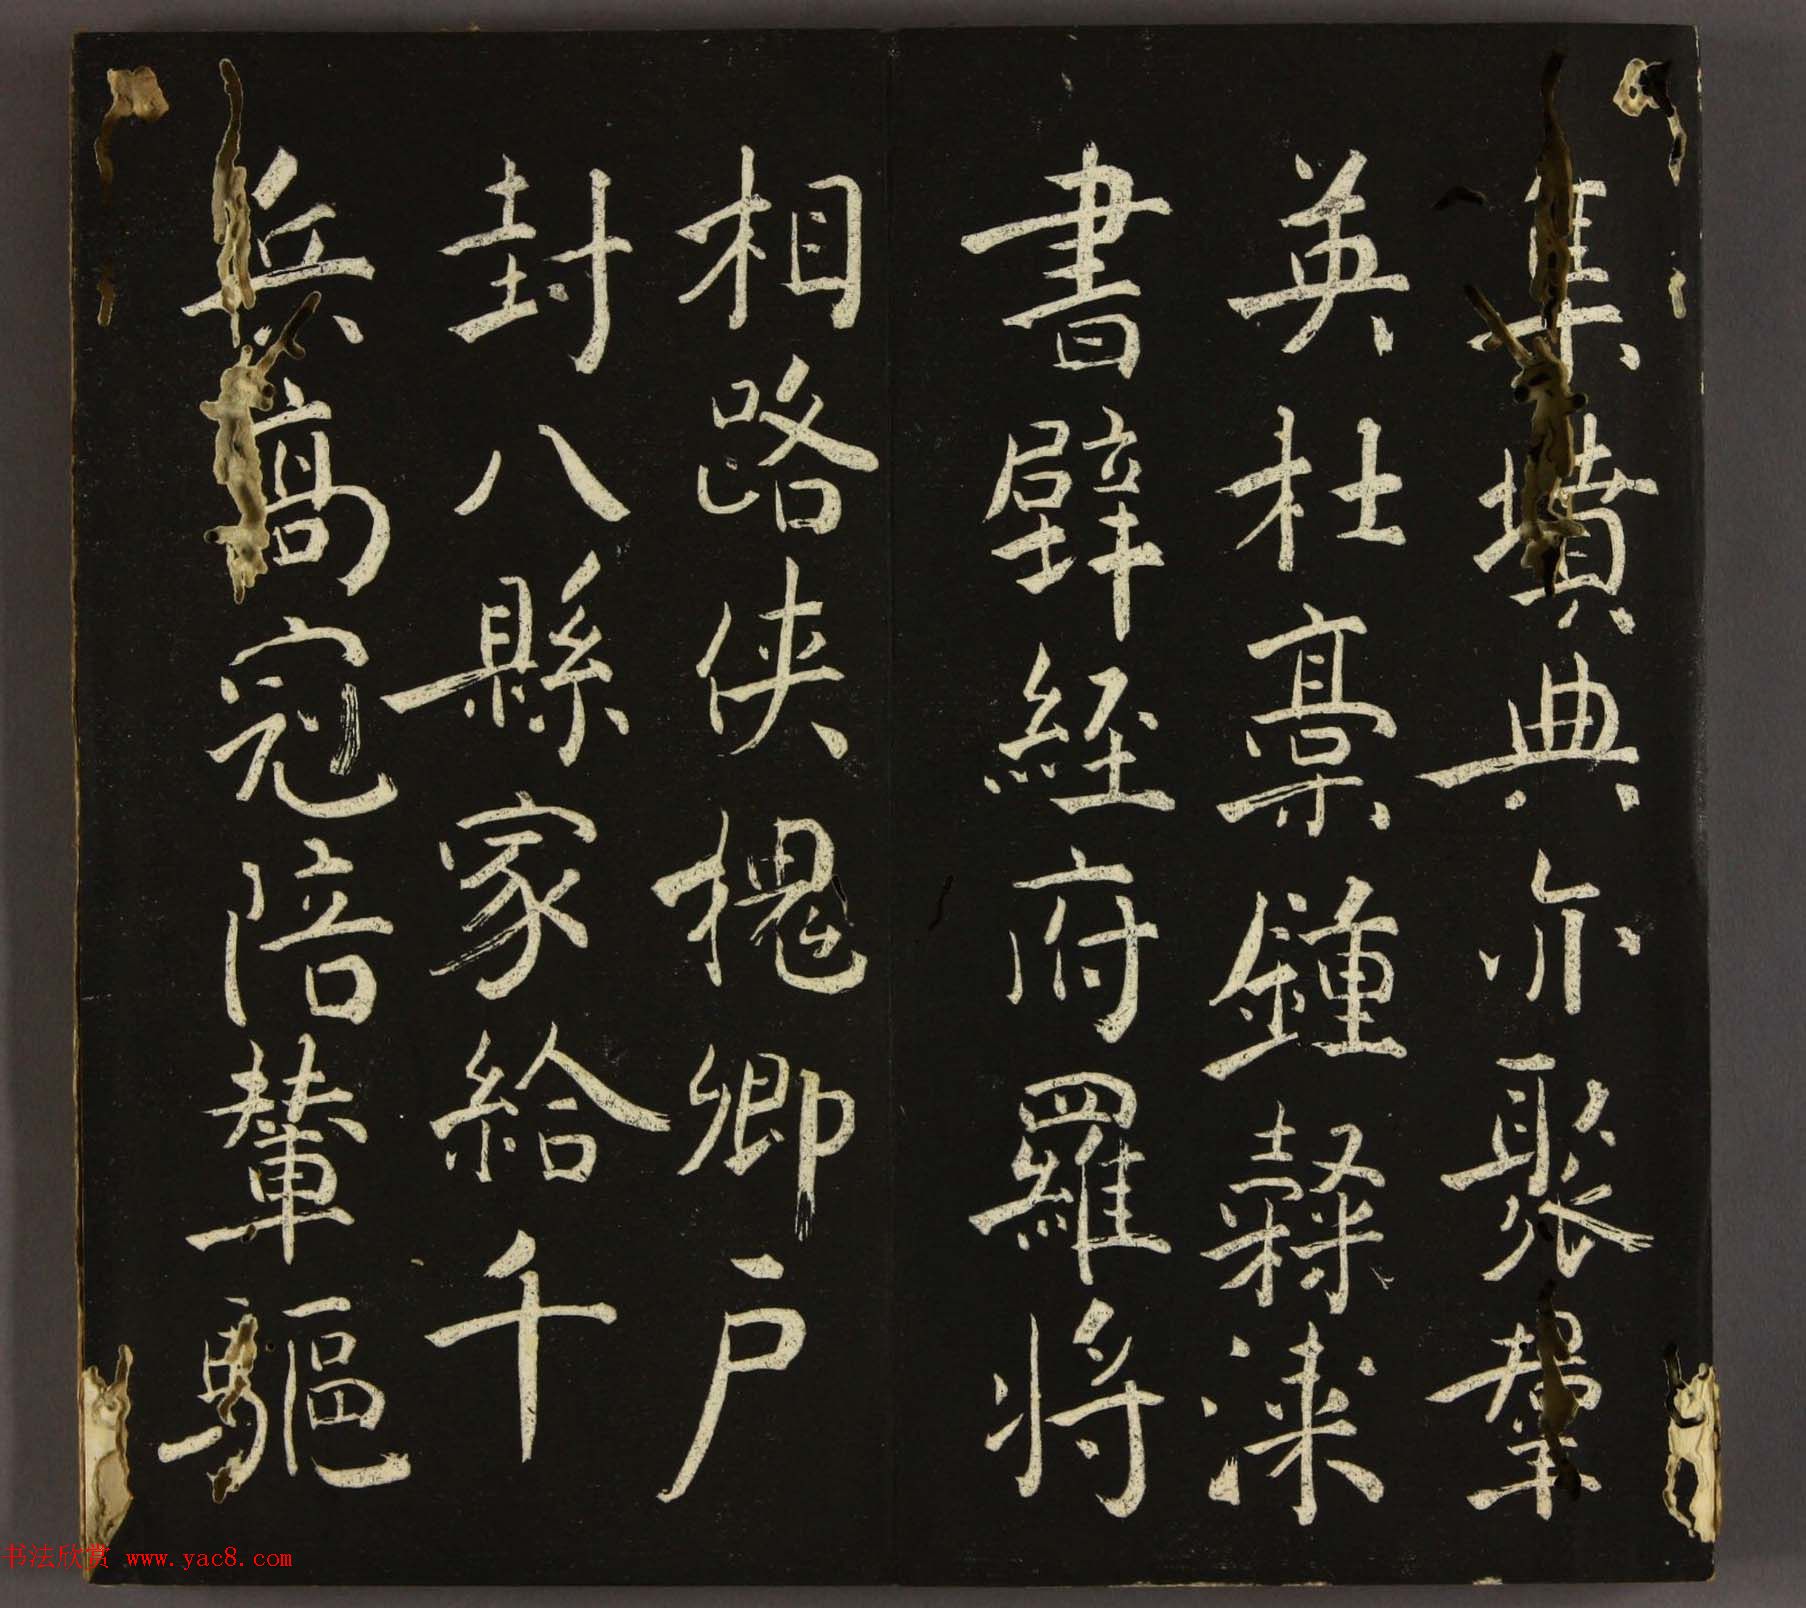 集墳典亦聚羣
英杜稾鍾隸漆
書壁經府羅將
相路俠槐卿戶
封八縣家給千
兵高冠陪輦驅
书法欣赏 www.yac8.com